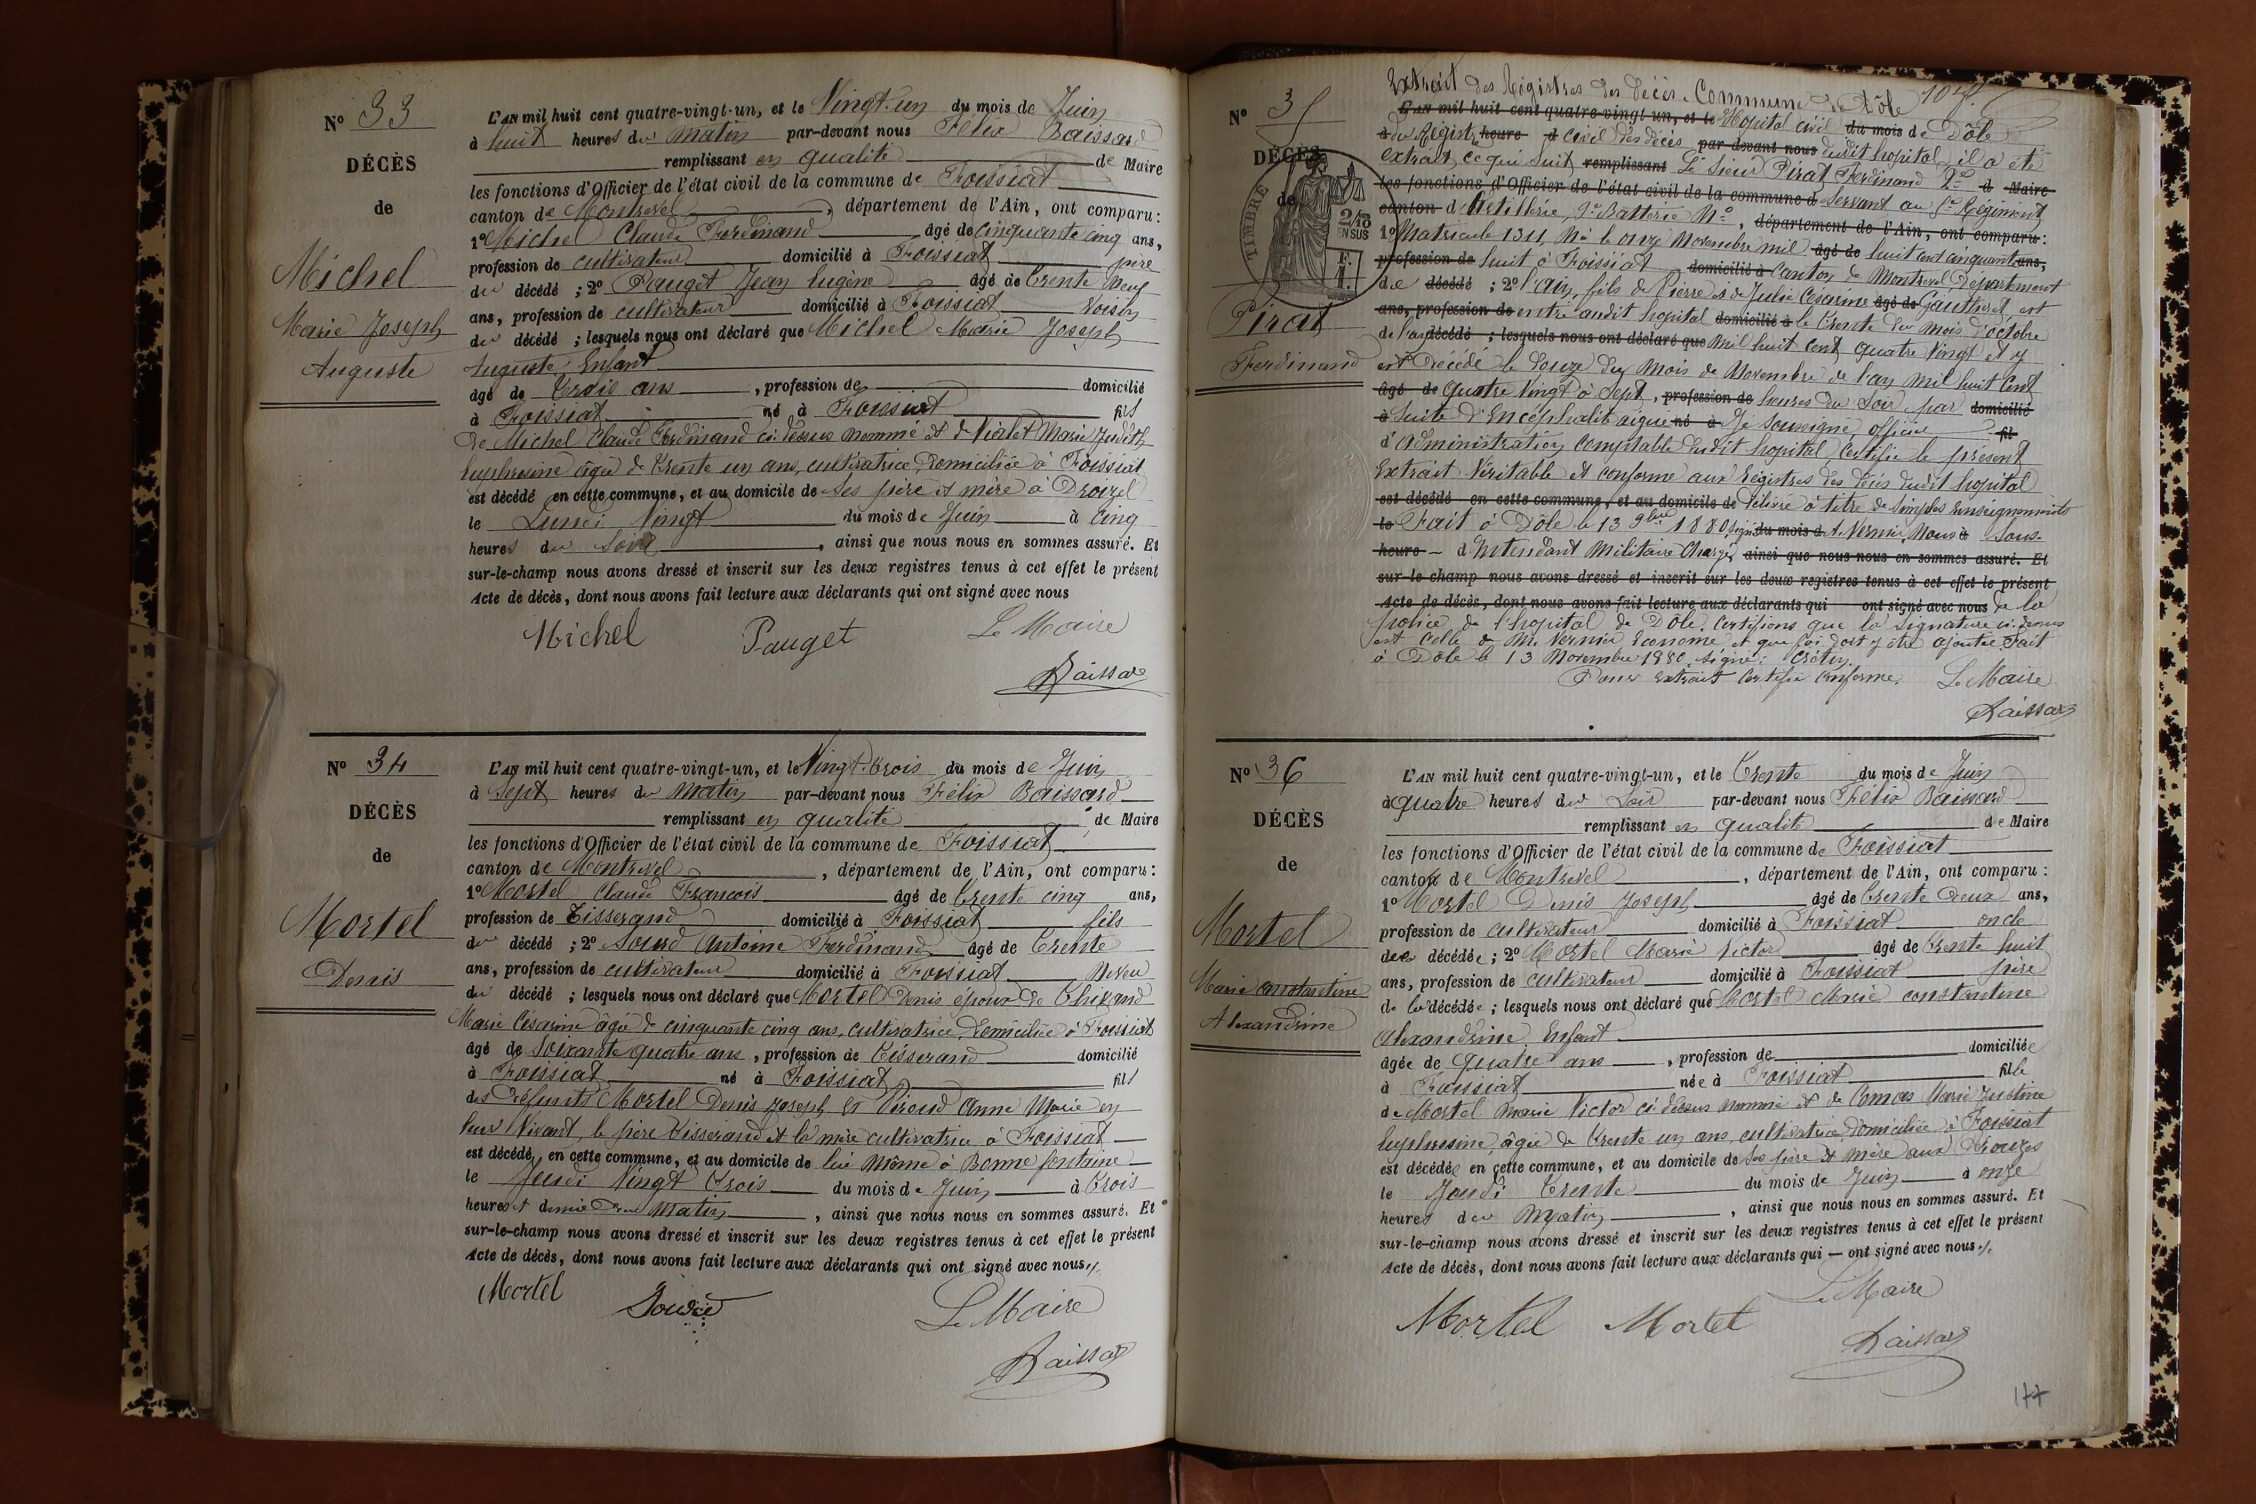 N° 33
DÉCÈS
de
Michel
Marie Joseph
Auguste
L'AN mil huit cent quatre-vingt-un, et le Vingt-un du mois de Juin
à huit heures du matin par-devant nous Félix Baissard
remplissant en qualité de Maire
les fonctions d'Officier de l'état civil de la commune de Foissiat
canton de Montrevel, département de l'Ain, ont comparu :
1° Michel Claude Ferdinand âgé de cinquante cinq ans,
profession de cultivateur domicilié à Foissiat père
du décédé ; 2° Pauget Jean Eugène âgé de trente neuf
ans, profession de cultivateur domicilié à Foissiat voisin
du décédé ; lesquels nous ont déclaré que Michel Marie Joseph
Auguste, Enfant
âgé de trois ans, profession de domicilié
à Foissiat né à Foissiat fils
de Michel Claude Ferdinand ci dessus nommé et de Vialet Marie Judith
Euphrosine âgée de trente un ans, cultivatrice, domiciliée à Foissiat
est décédé en cette commune, et au domicile de ses père et mère à
le Lundi Vingt du mois de Juin à cinq
heures du soir, ainsi que nous nous en sommes assuré. Et
sur-le-champ nous avons dressé et inscrit sur les deux registres tenus à cet effet le présent
Acte de décès, dont nous avons fait lecture aux déclarants qui ont signé avec nous
Michel Pauget Le Maire
Baissard
N° 34
DÉCÈS
de
Mortel
Denis
L'AN mil huit cent quatre-vingt-un, et le Vingt-trois du mois de Juin
à Sept heures du matin par-devant nous Félix Baissard
remplissant en qualité de Maire
les fonctions d'Officier de l'état civil de la commune de Foissiat
canton de Montrevel, département de l'Ain, ont comparu :
1° Mortel Claude François âgé de trente cinq ans,
profession de Tisserand domicilié à Foissiat fils
du décédé ; 2° Sourd Antoine Ferdinand âgé de trente
ans, profession de cultivateur domicilié à Foissiat Neveu
du décédé ; lesquels nous ont déclaré que Mortel Denis époux de
Marie Césarine âgée de cinquante cinq ans, cultivatrice, domiciliée à Foissiat
âgé de soixante quatre ans, profession de Tisserand domicilié
à Foissiat né à Foissiat fils
des défunts Mortel Denis Joseph et Anne Marie en
leur vivant, le père tisserand et la mère cultivatrice à Foissiat
est décédé en cette commune, et au domicile de lui même à Bonne fontaine
le Jeudi Vingt trois du mois de Juin à trois
heures et demie du Matin, ainsi que nous nous en sommes assuré. Et
sur-le-champ nous avons dressé et inscrit sur les deux registres tenus à cet effet le présent
Acte de décès, dont nous avons fait lecture aux déclarants qui ont signé avec nous
Mortel Sourd Le Maire
Baissard
N° 35
DÉCÈS
de
TIMBRE
2/10
EN SUS
Pirat
Ferdinand
Extrait des Registres des décès Commune de Dôle
L'AN mil huit cent quatre-vingt-un, et le Hôpital civil du mois de Dôle
à du Registre heure d civil des décès par-devant nous dudit hôpital, il a été
extrait ce qui suit remplissant Le sieur Pirat Ferdinand 2e d Maire
les fonctions d'Officier de l'état civil de la commune d servant au Régiment
canton d'Artillerie, Batterie N°, département de l'Ain, ont comparu :
1° Matricule 1311, Né le onze Novembre mil âgé de huit cent cinquante ans,
profession de huit à Foissiat domicilié à canton de Montrevel, Département
de décédé ; 2° l'Ain, fils de Pierre et de Julie Césarine âgé de Gautheret, est
ans, profession de entré audit hôpital domicilié à le trente du mois d'octobre
de l'an décédé ; lesquels nous ont déclaré que mil huit cent quatre vingt et y
est décédé le douze du mois de Novembre de l'an mil huit cent
âgé de quatre vingt à sept, profession de heures du soir par domicilié
à suite d'Encéphalite aigue né à Je soussigné officier fil
d'administration comptable dudit hôpital certifie le présent
Extrait véritable et conforme aux Registres des décès dudit hôpital
est décédé en cette commune, et au domicile de Délivré à titre de simples renseignements
le Fait à Dôle le 13 9bre 1880, signé du mois d A. Vernier, Nous à Sous-
heure d'Intendant Militaire chargé, ainsi que nous nous en sommes assuré. Et
sur-le-champ nous avons dressé et inscrit sur les deux registres tenus à cet effet le présent
Acte de décès, dont nous avons fait lecture aux déclarants qui ont signé avec nous de la
police de l'hôpital de Dôle, certifions que la signature ci-dessus
est celle de M. Vernier Econome et que foi doit y être ajoutée. Fait
à Dôle le 13 Novembre 1880, signé : Crétin
Pour extrait certifié conforme. Le Maire
Baissard
N° 36
DÉCÈS
de
Mortel
Marie Constantine
Alexandrine
L'AN mil huit cent quatre-vingt-un, et le trente du mois de Juin
à quatre heures du soir par-devant nous Félix Baissard
remplissant en qualité de Maire
les fonctions d'Officier de l'état civil de la commune de Foissiat
canton de Montrevel, département de l'Ain, ont comparu :
1° Mortel Denis Joseph âgé de trente deux ans,
profession de cultivateur domicilié à Foissiat oncle
de décédée ; 2° Mortel Marie Victor âgé de trente huit
ans, profession de cultivateur domicilié à Foissiat père
de la décédée ; lesquels nous ont déclaré que Mortel Marie Constantine
Alexandrine, Enfant
âgée de quatre ans, profession de domiciliée
à Foissiat née à Foissiat fille
de Mortel Marie Victor ci dessus nommé et de Comas Marie Justine
Euphrosine, âgée de trente un ans, cultivatrice, domiciliée à Foissiat
est décédée en cette commune, et au domicile de ses père et mère aux
le Jeudi trente du mois de Juin à onze
heures du Matin, ainsi que nous nous en sommes assuré. Et
sur-le-champ nous avons dressé et inscrit sur les deux registres tenus à cet effet le présent
Acte de décès, dont nous avons fait lecture aux déclarants qui — ont signé avec nous
Le Maire
Mortel Mortel
Baissard
177